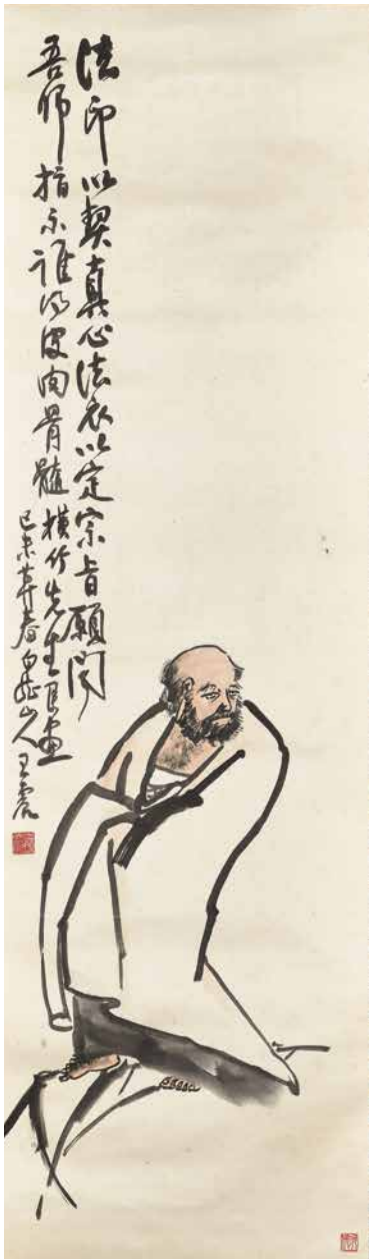 法印以契真心法衣以定宗旨願聞
吾師指示誰得皮肉骨髓
橫竹先生畫
己未莫春白龍山人王震